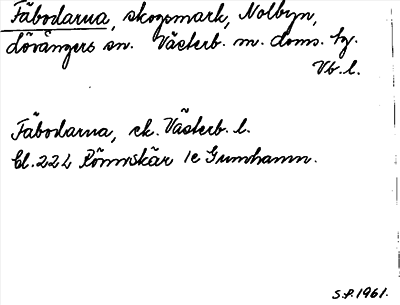 Fäbodarna, skogsmark, Nolbyn,
Lövångers sn. Västerb. m. doms. tg.
Vb. l.
Fäbodarna, ek. Västerb. l.
Bl. 222 Rönnskär 1c Gumhamn.
S.P. 1961.